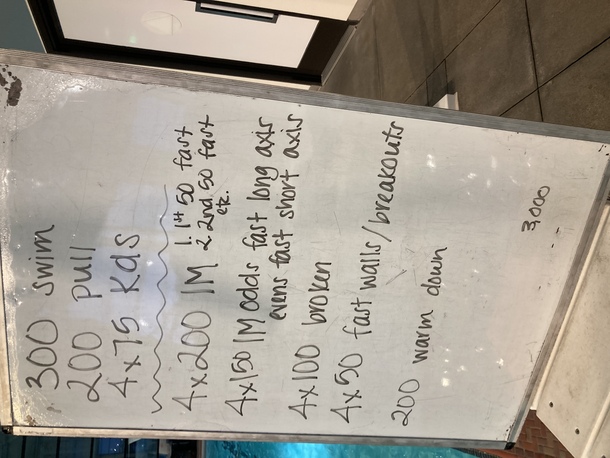 300 swim
200 pull
4x75 Kds
4x200 IM 1. 1st 50 fast
2. 2nd 50 fast
etc.
4x150 IM odds fast long axis
evens fast short axis
4x100 broken
4x50 fast walls/breakouts
200 warm down
3,000